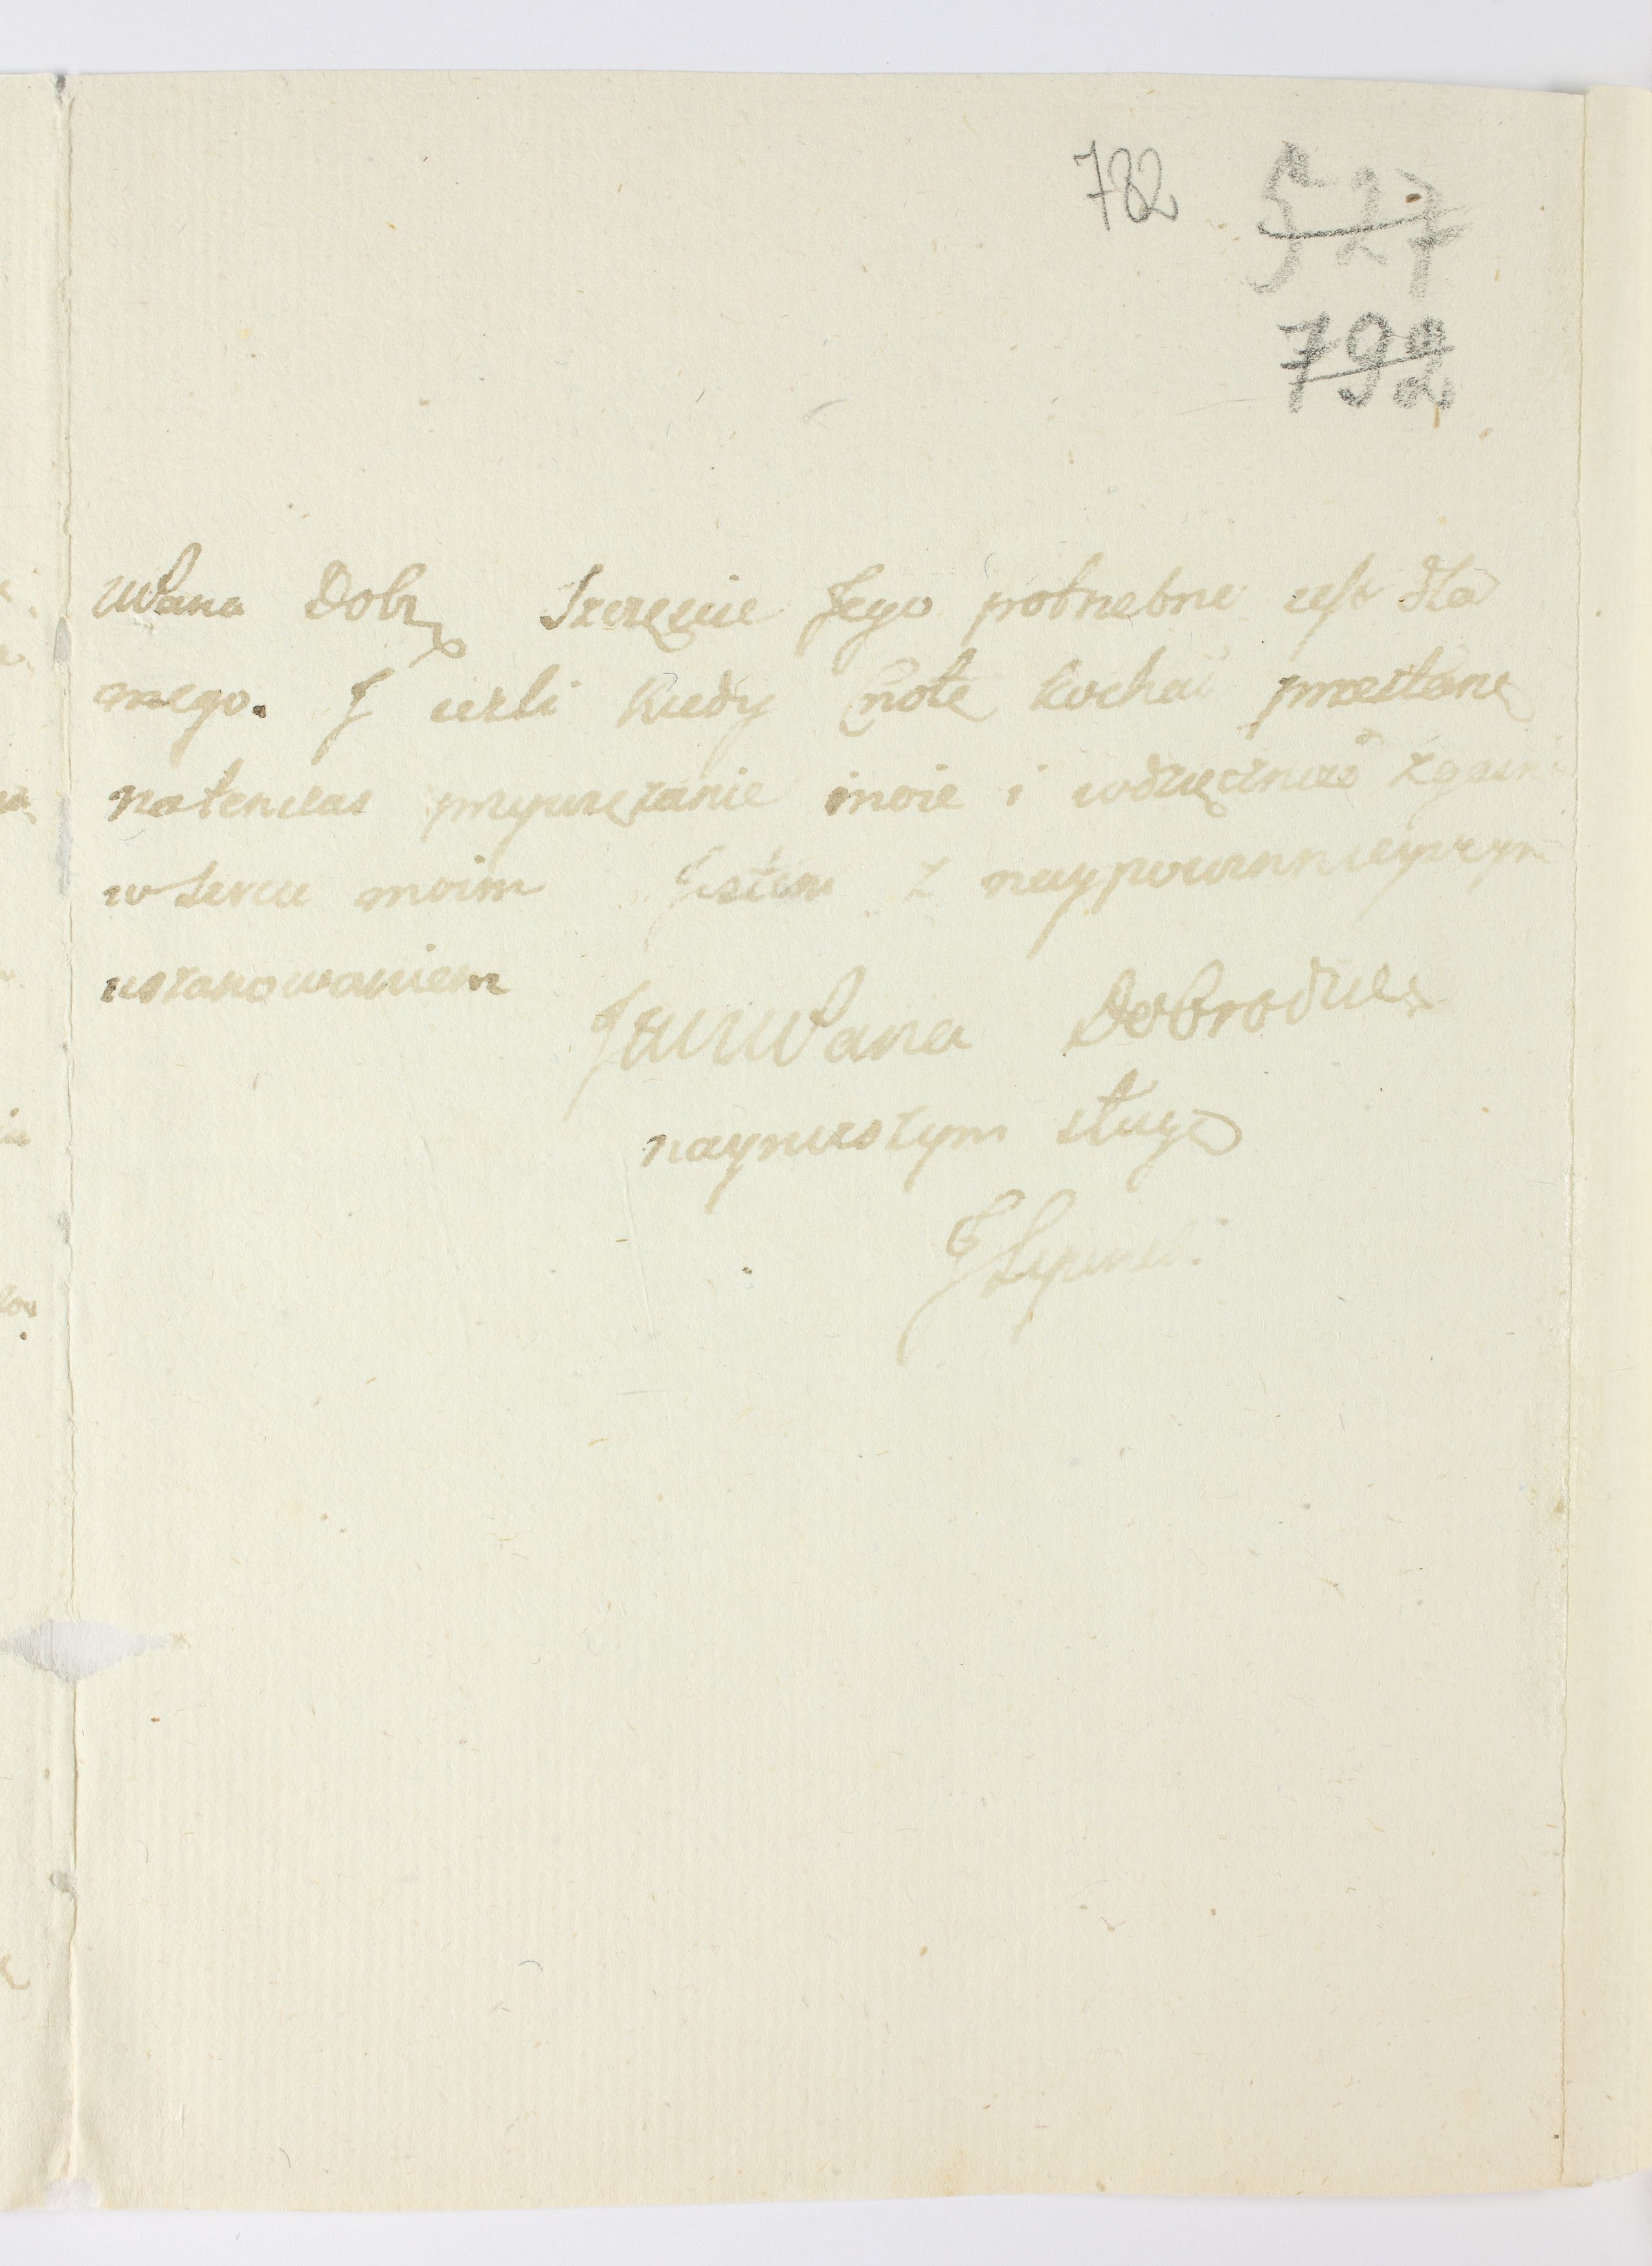 782 527
792
WPana Dobr. Szczęscie Jego potrzebne iest dla
mego. J iezli kiedy Cnotę kochać przestanę
natenczas przywiązanie moie i wdzięczność zgasni
w sercu moim Jestem z naypowinnieyszym
uszanowaniem
JWWPana Dobrodzieia
naynizszym sługą